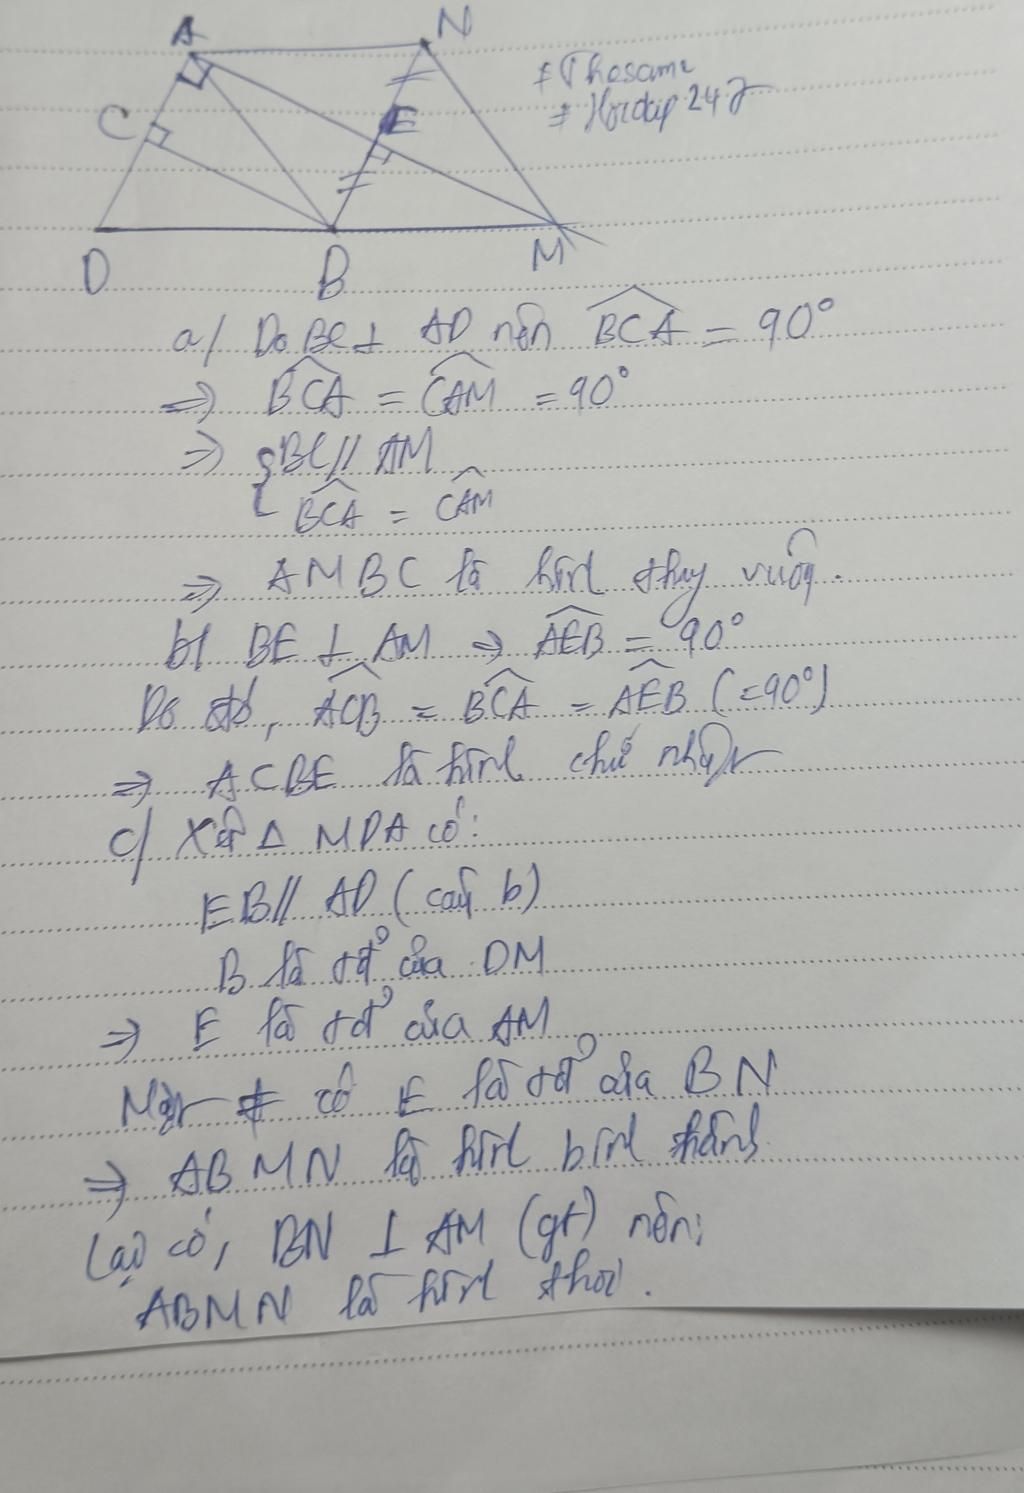 A N
C E
D B M
# Thosama
# Hoidap 247
a/ Do BC ⊥ AD nên BCA = 90°
⇒ BCA = CAM = 90°
⇒ { BC // AM
BCA = CAM
⇒ AMBC là hình thag vuông.
b/ BE ⊥ AM ⇒ AEB = 90°
Do đó, ACB = BCA = AEB (=90°)
⇒ ACBE là hình chữ nhật
c/ Xét Δ MDA có:
EB // AD (câu b)
B là tđ của DM
⇒ E là tđ của AM
Mặt ≠ có E là tđ của BN
⇒ ABMN là hình bình hành
Lại có, BN ⊥ AM (gt) nên:
ABMN là hình thoi.